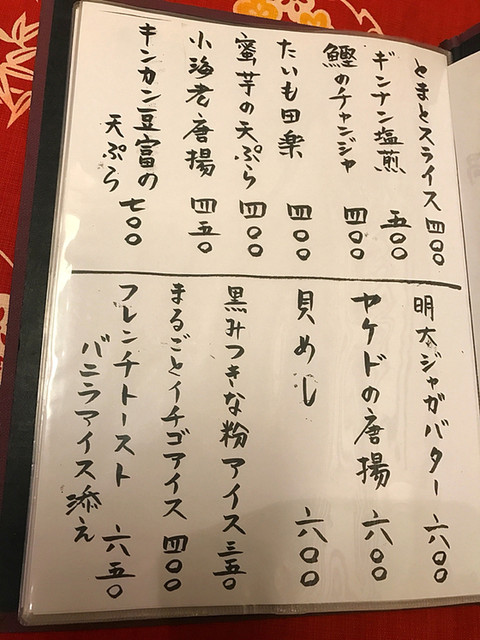 とまとスライス 四〇〇
ギンナン塩煎 五〇〇
鰹のチャンジャ 四〇〇
たいも田楽 四〇〇
蜜芋の天ぷら 四〇〇
小海老唐揚 四五〇
キンカン豆富の
天ぷら 七〇〇
明太ジャガバター 六〇〇
ヤケドの唐揚 六〇〇
貝めし 六〇〇
黒みつきな粉アイス 三五〇
まるごとイチゴアイス 四〇〇
フレンチトースト
バニラアイス添え 六五〇